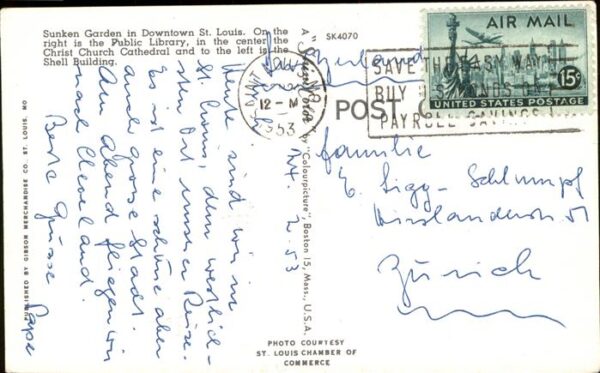 Sunken Garden in Downtown St. Louis. On the
right is the Public Library, in the center the
Christ Church Cathedral and to the left is the
Shell Building.
SK4070
AIR MAIL
15¢
UNITED STATES POSTAGE
SAVE THE EASY WAY
BUY U.S. BONDS ON
PAYROLL SAVINGS
12 - M
1953
POST
A "Colourpicture", Boston 15, Mass., U.S.A.
2. 53
Heute sind wir in
St. Louis, dem westlich-
sten Ort unserer Reise.
Es ist eine schöne aber
auch grosse Stadt.
Am Abend fliegen wir
nach Cleveland.
Beste Grüsse
Papa
Familie
E. Sigg-Schlumpf
Zürich
PUBLISHED BY GIBSON MERCHANDISE CO. ST. LOUIS, MO
PHOTO COURTESY
ST. LOUIS CHAMBER OF
COMMERCE